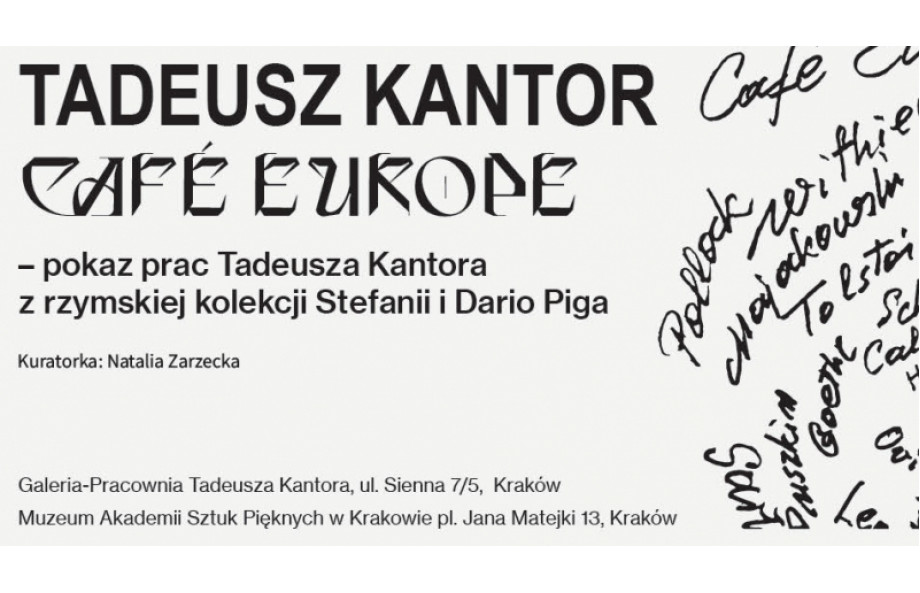 TADEUSZ KANTOR
CAFÉ EUROPE
– pokaz prac Tadeusza Kantora
z rzymskiej kolekcji Stefanii i Dario Piga
Kuratorka: Natalia Zarzecka
Galeria-Pracownia Tadeusza Kantora, ul. Sienna 7/5, Kraków
Muzeum Akademii Sztuk Pięknych w Krakowie pl. Jana Matejki 13, Kraków
Café
Pollock
Majakowski
Tołstoi
Goethe
Puszkin